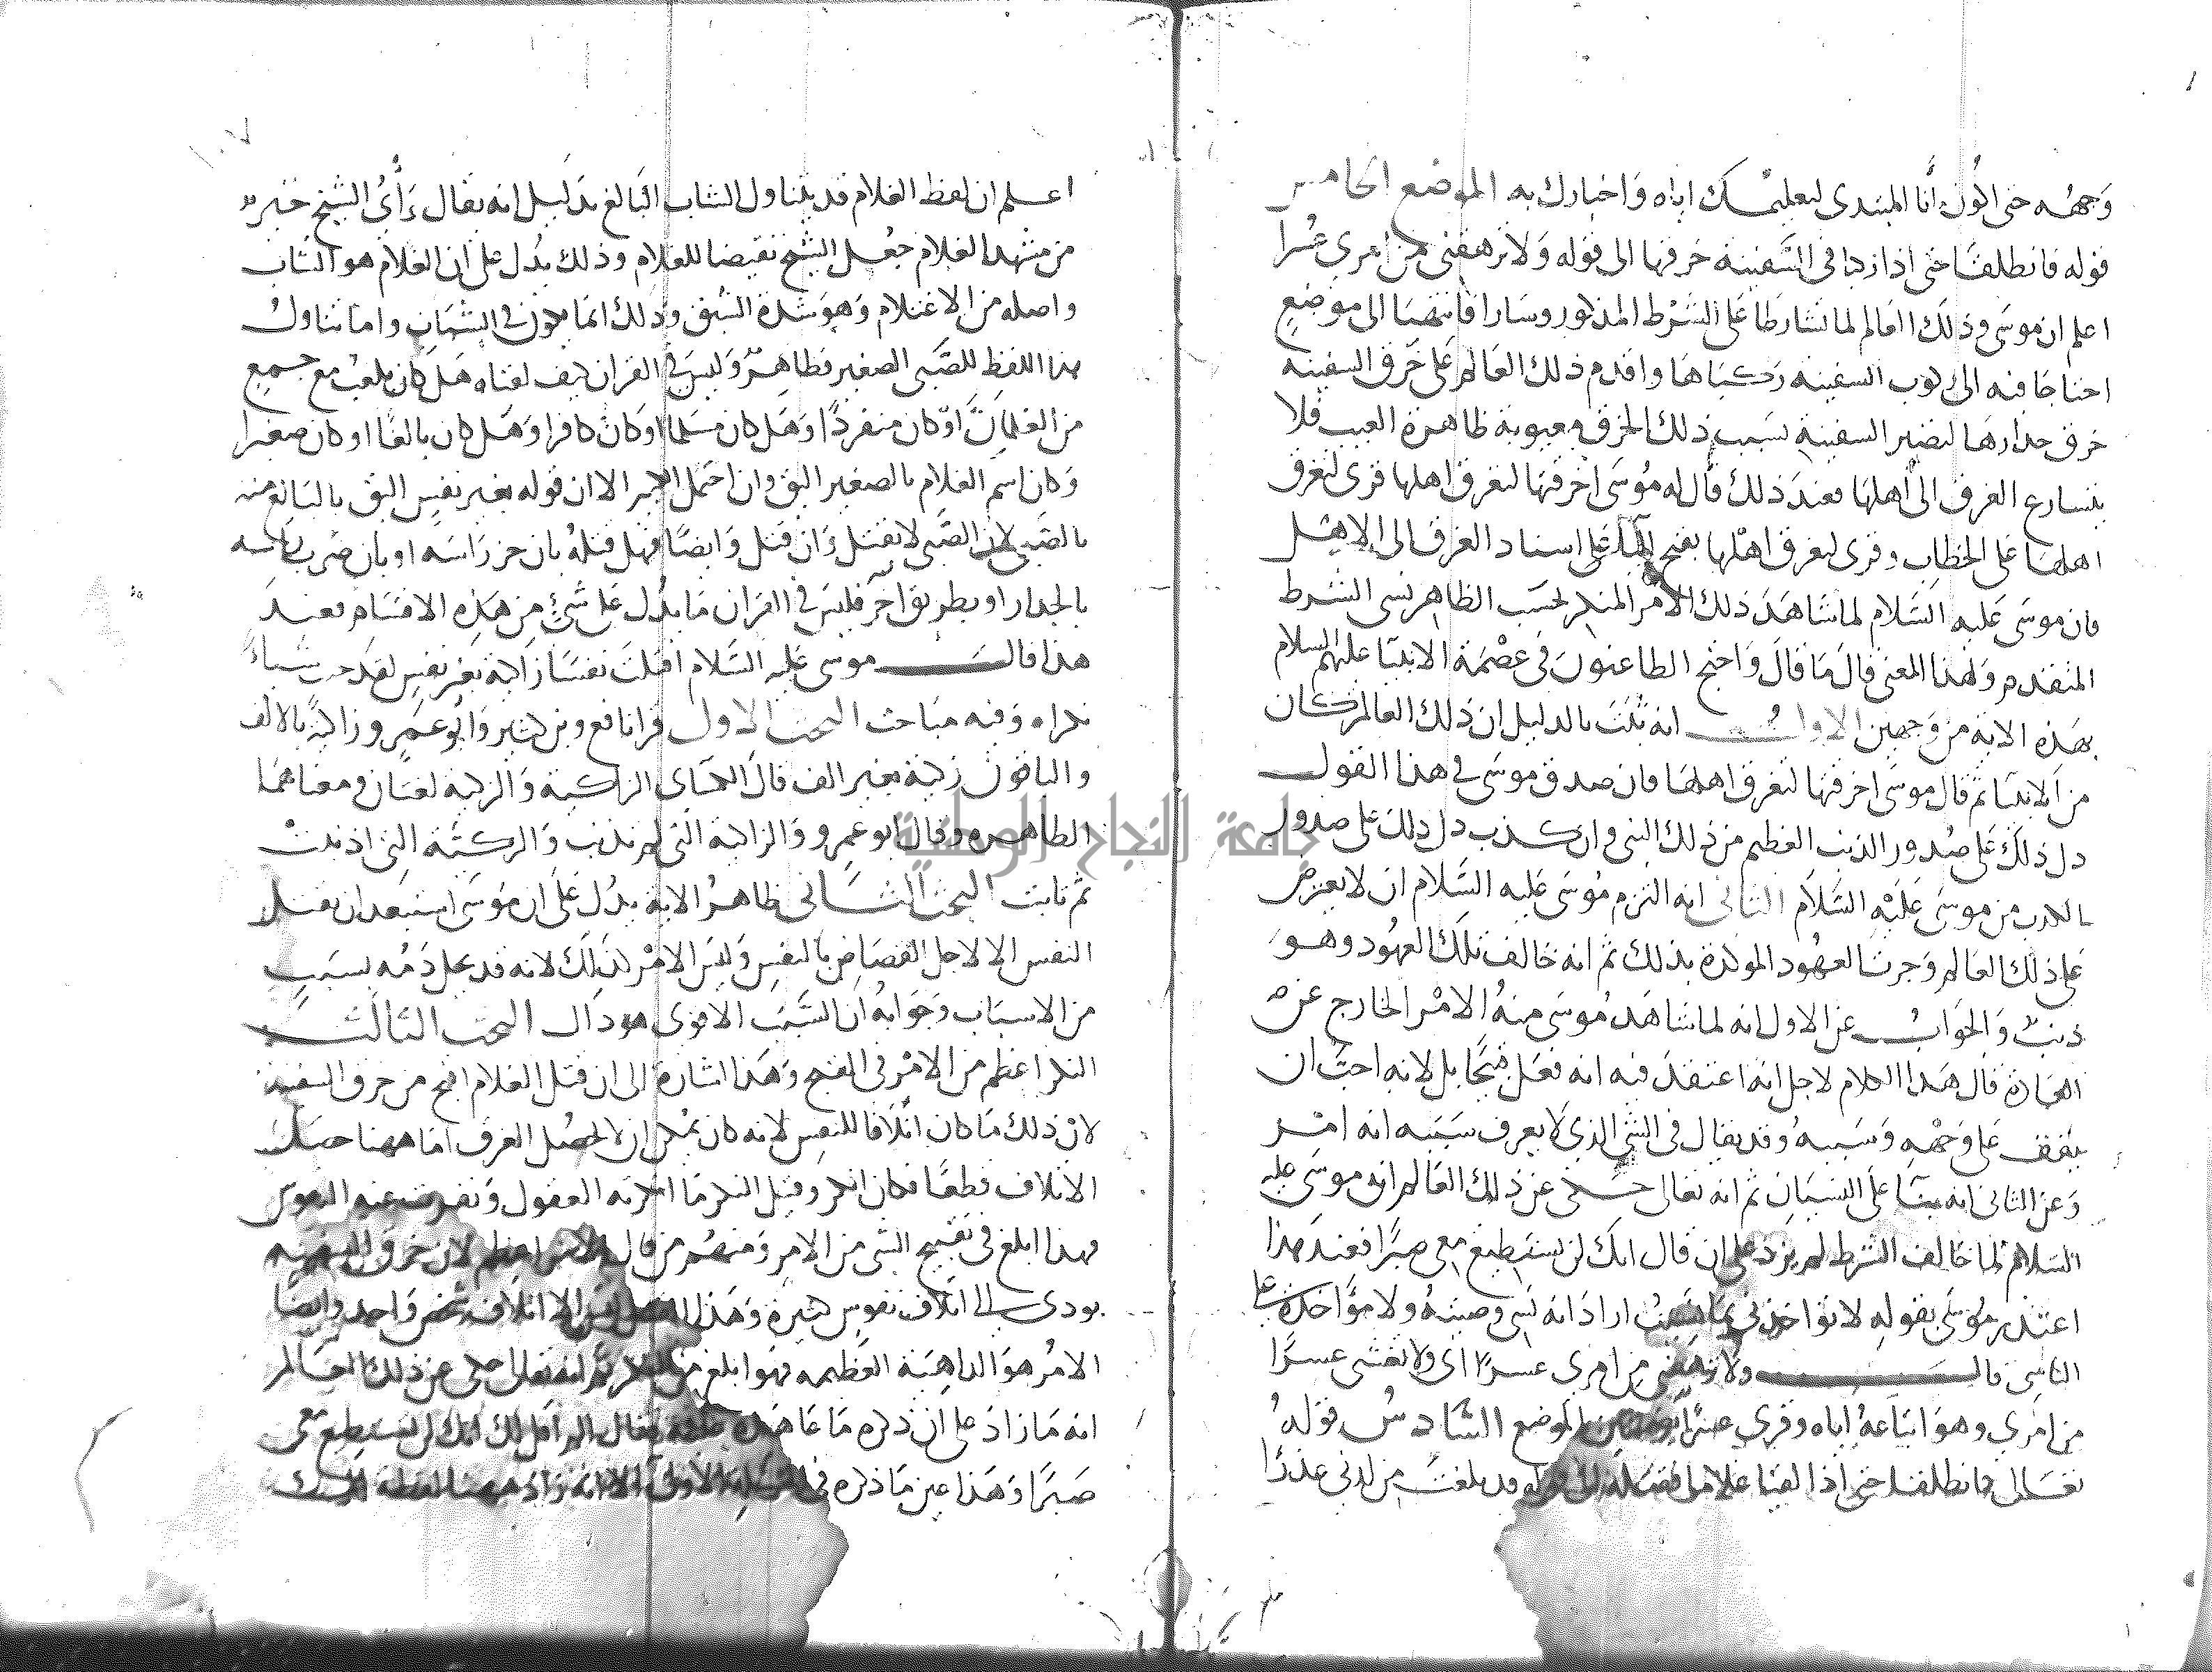 وَجهُه حتى اكُون أَنا المبتدى لتعليمك اياه وَاخبارك به الموضع الخامس
قوله فانطلقا حتى اذا ركبا فى السَّفينة خرقها الى قوله وَلا ترهقنى من امرى عُسرا
اعلم ان موسَى وذلك العالم لما تشارطا عَلى الشَّرْط المذكور وسَارا فانتهَيا الى موضعٍ
احتاجَا فيه الى ركوب السفينة رَكبَاهَا واقدم ذلك العَالم عَلى خَرق السفينه
خرق جدارهَا لتصير السفينة بسَبب ذلك الخرق معيوبة ظاهرة العيب فلا
يتسارع الغرق الى أهلهَا فعندَ ذلك قَال له مُوسَى اخرقتهَا لتغرق اهلها قرى لتغرق
اهلهَا عَلى الخطاب وقرى ليغرق اهْلها بفتح اليآ عَلى اسناد الغرق الى الاهل
فان موسَى عَليه السَّلام لما شاهَدَ ذلك الأمر المنكر بحسَب الظاهر نسى الشرط
المتقدم وَلهذا المعنى قالَ مَا قالَ وَاحتج الطاعنونَ فى عصْمَة الانبيَا عليهمُ السلام
بهَذِه الاية من وَجهين الاول انه ثبت بالدليل ان ذلك العالم كان
من الانبيَا ثم قال موسَى اخرقتهَا لتغرق اهلهَا فان صدق موسَى فى هذا القول
دل ذلكَ عَلى صُدور الذنب العظيم من ذلك النبى وان كذب دل ذلك على صدور
الكذب من موسَى عَليْه السَّلاَم الثانى انه التزم مُوسَى عَليه السَّلام ان لا يعترض
عَلى ذلك العَالم وَجرت العهُود الموكدة بذلك ثم انه خالف تلكَ العهُود وهوَ
ذنبٌ وَالجوَابُ عن الاول انه لما شاهَدَ مُوسَى منهُ الامْر الخارج عن
العَادة قال هَذا الكلام لا جل انه اعتقدَ فيه انه فعَل قبيحًا بل لانه احبَّ ان
يقفَ عَلى وَجْهه وَسَببهُ وقد يقال فى الشئ الذى لا يعرف سَببَه انه امْر
وَعن الثانى انه بنَآ عَلَى النسيَان ثم انه تعالى حَكى عن ذلك العَالم انه موسَى عليه
السَلامُ لما خَالف الشرط لم يزد على ان قال انكَ لن تستطيعَ معى صبرًا فعندَ هذا
اعتذر مُوسَى بقوله لا تؤاخذنى بمَا نسيتُ ارادَ انه نَسى وصيتهُ ولا مؤَاخذةَ على
الناسى قال ولا ترهقنى من امرى عسرًا اى ولا تغشنى عسرًا
من امرى وهوَ اتباعهُ اياه وقرى عسُرًا بضمتين الموضع السَّادسُ قولهُ
تعَالى فانطلقا حتى اذا لقيَا غلاما فقتله الى قوله قد بلغتَ من لدنى عذرًا
اعلم ان لفظ الغلام قد يتناول الشاب البَالغ بدَليل انه يقال رَأىُ الشيخ خيرٌ
من مشْهد الغلام جعُل الشيخ نقيضا للغلام وذلك يدُل على ان الغلام هو الشاب
واصله من الاغتلام وَهوَ شدة الشبق وَذلك انما يكون فى الشبَاب واما تناول
هذا اللفظ للصَّبى الصغير فظاهرٌ وَليسَ فى القران كيف لقيَاه هَل كان يلعَب مع جمع
من الغلمَان أوْ كان منفردًا وَهَل كان مسَلما او كان كافرا وَهَل كان بالغًا او كان صغيرا
وَكان اسم الغلام بالصغير اليق وان احتمل الكبير الا ان قوله بغير نفسٍ اليق بالبَالغ منه
بالصَّبى لان الصَّبى لا يقتل وَان قتل وَايضًا فهل قتلهُ بان حز رَاسَه او بان ضربَ رَاسه
بالجدار او بطريق آخر فليسَ فى القران مَا يدُل عَلى شئٍ من هَذِه الاقسَام فعندَ
هذا قال موسى عَليه السَّلام اقتلتَ نفسًا زَاكية بغير نفسٍ لقد جئت شيئاً
نكرا وَفيه مبَاحث البحث الاول قرا نافع وبن كثير وَابُو عَمرٍو زاكيةً بالالف
والباقون زكية بغير الف قالَ الكسَاى الزاكية وَالزكية لغتان ومعناهمَا
الطاهره وقال ابو عمرو وَالزاكية التى لم تذنب وَالزكيَّة التى اذنبتْ
ثم تابت البحث الثَانى ظاهرُ الاية يدُل عَلَى ان مُوسَى استبعَد ان يقتل
النفس الا لاجل القصَاصِ بالنفس وَليسَ الامْر كذَلك لانه قد يحل دَمُه بسَببٍ
من الاسبَاب وَجَوابهُ ان السَّبَب الاقوى هو ذَاك البحث الثالث
النكر اعظم من الامْر فى القبح وَهَذا اشارة الى ان قتل الغلام اقبح من خرق السفينة
لانَّ ذلك مَا كان اتلافا للنفس لانه كان يمْكن ان لا يحصُل الغرق امَا ههنا حصَل
الاتلاف قطعًا فكان انكر وقيل النكر مَا انكرته العقول وَنفرت عنه النفوس
فهذا ابلغ فى تقبيح الشى من الامر وَمنهُم من قال الامر اعظم لان خرق السفينه
يودى الى اتلاف نفوس كثيرة وَهَذا القتل ليس الا اتلاف شخص وَاحد وايضا
الامرُ هوَ الداهيَة العَظيمه فهوَ ابلغ من النكر ثم انه تعالى حكى عن ذلك العالم
انه مَا زادَ على ان ذكره مَا عَاهَدَه عليه فقال الم اقل لك انك لن تستطيع معى
صَبرًا وَهَذا عين مَا ذكره فى المسألة الاولى الا انه زاد ههنا لفظة لك